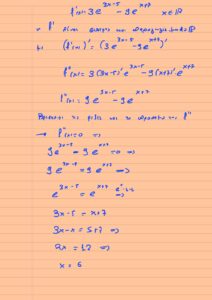 f'(x)=3e^{3x-5} - 9e^{x+7} x∈ℝ
f'
β) (f'(x))' = (3e^{3x-5} - 9e^{x+7})'
f''(x)= 3(3x-5)'e^{3x-5} - 9(x+7)'e^{x+7}
f''(x)= 9e^{3x-5} - 9e^{x+7}
τις ρίζες και το πρόσημο της f''
→ f''(x)=0 ⇒
9e^{3x-5} - 9e^{x+7} =0 ⇒
9e^{3x-5} = 9e^{x+7} ⇒
e^{3x-5} = e^{x+7}
3x-5 = x+7
3x-x = 5+7 ⇒
2x = 12 ⇒
x = 6